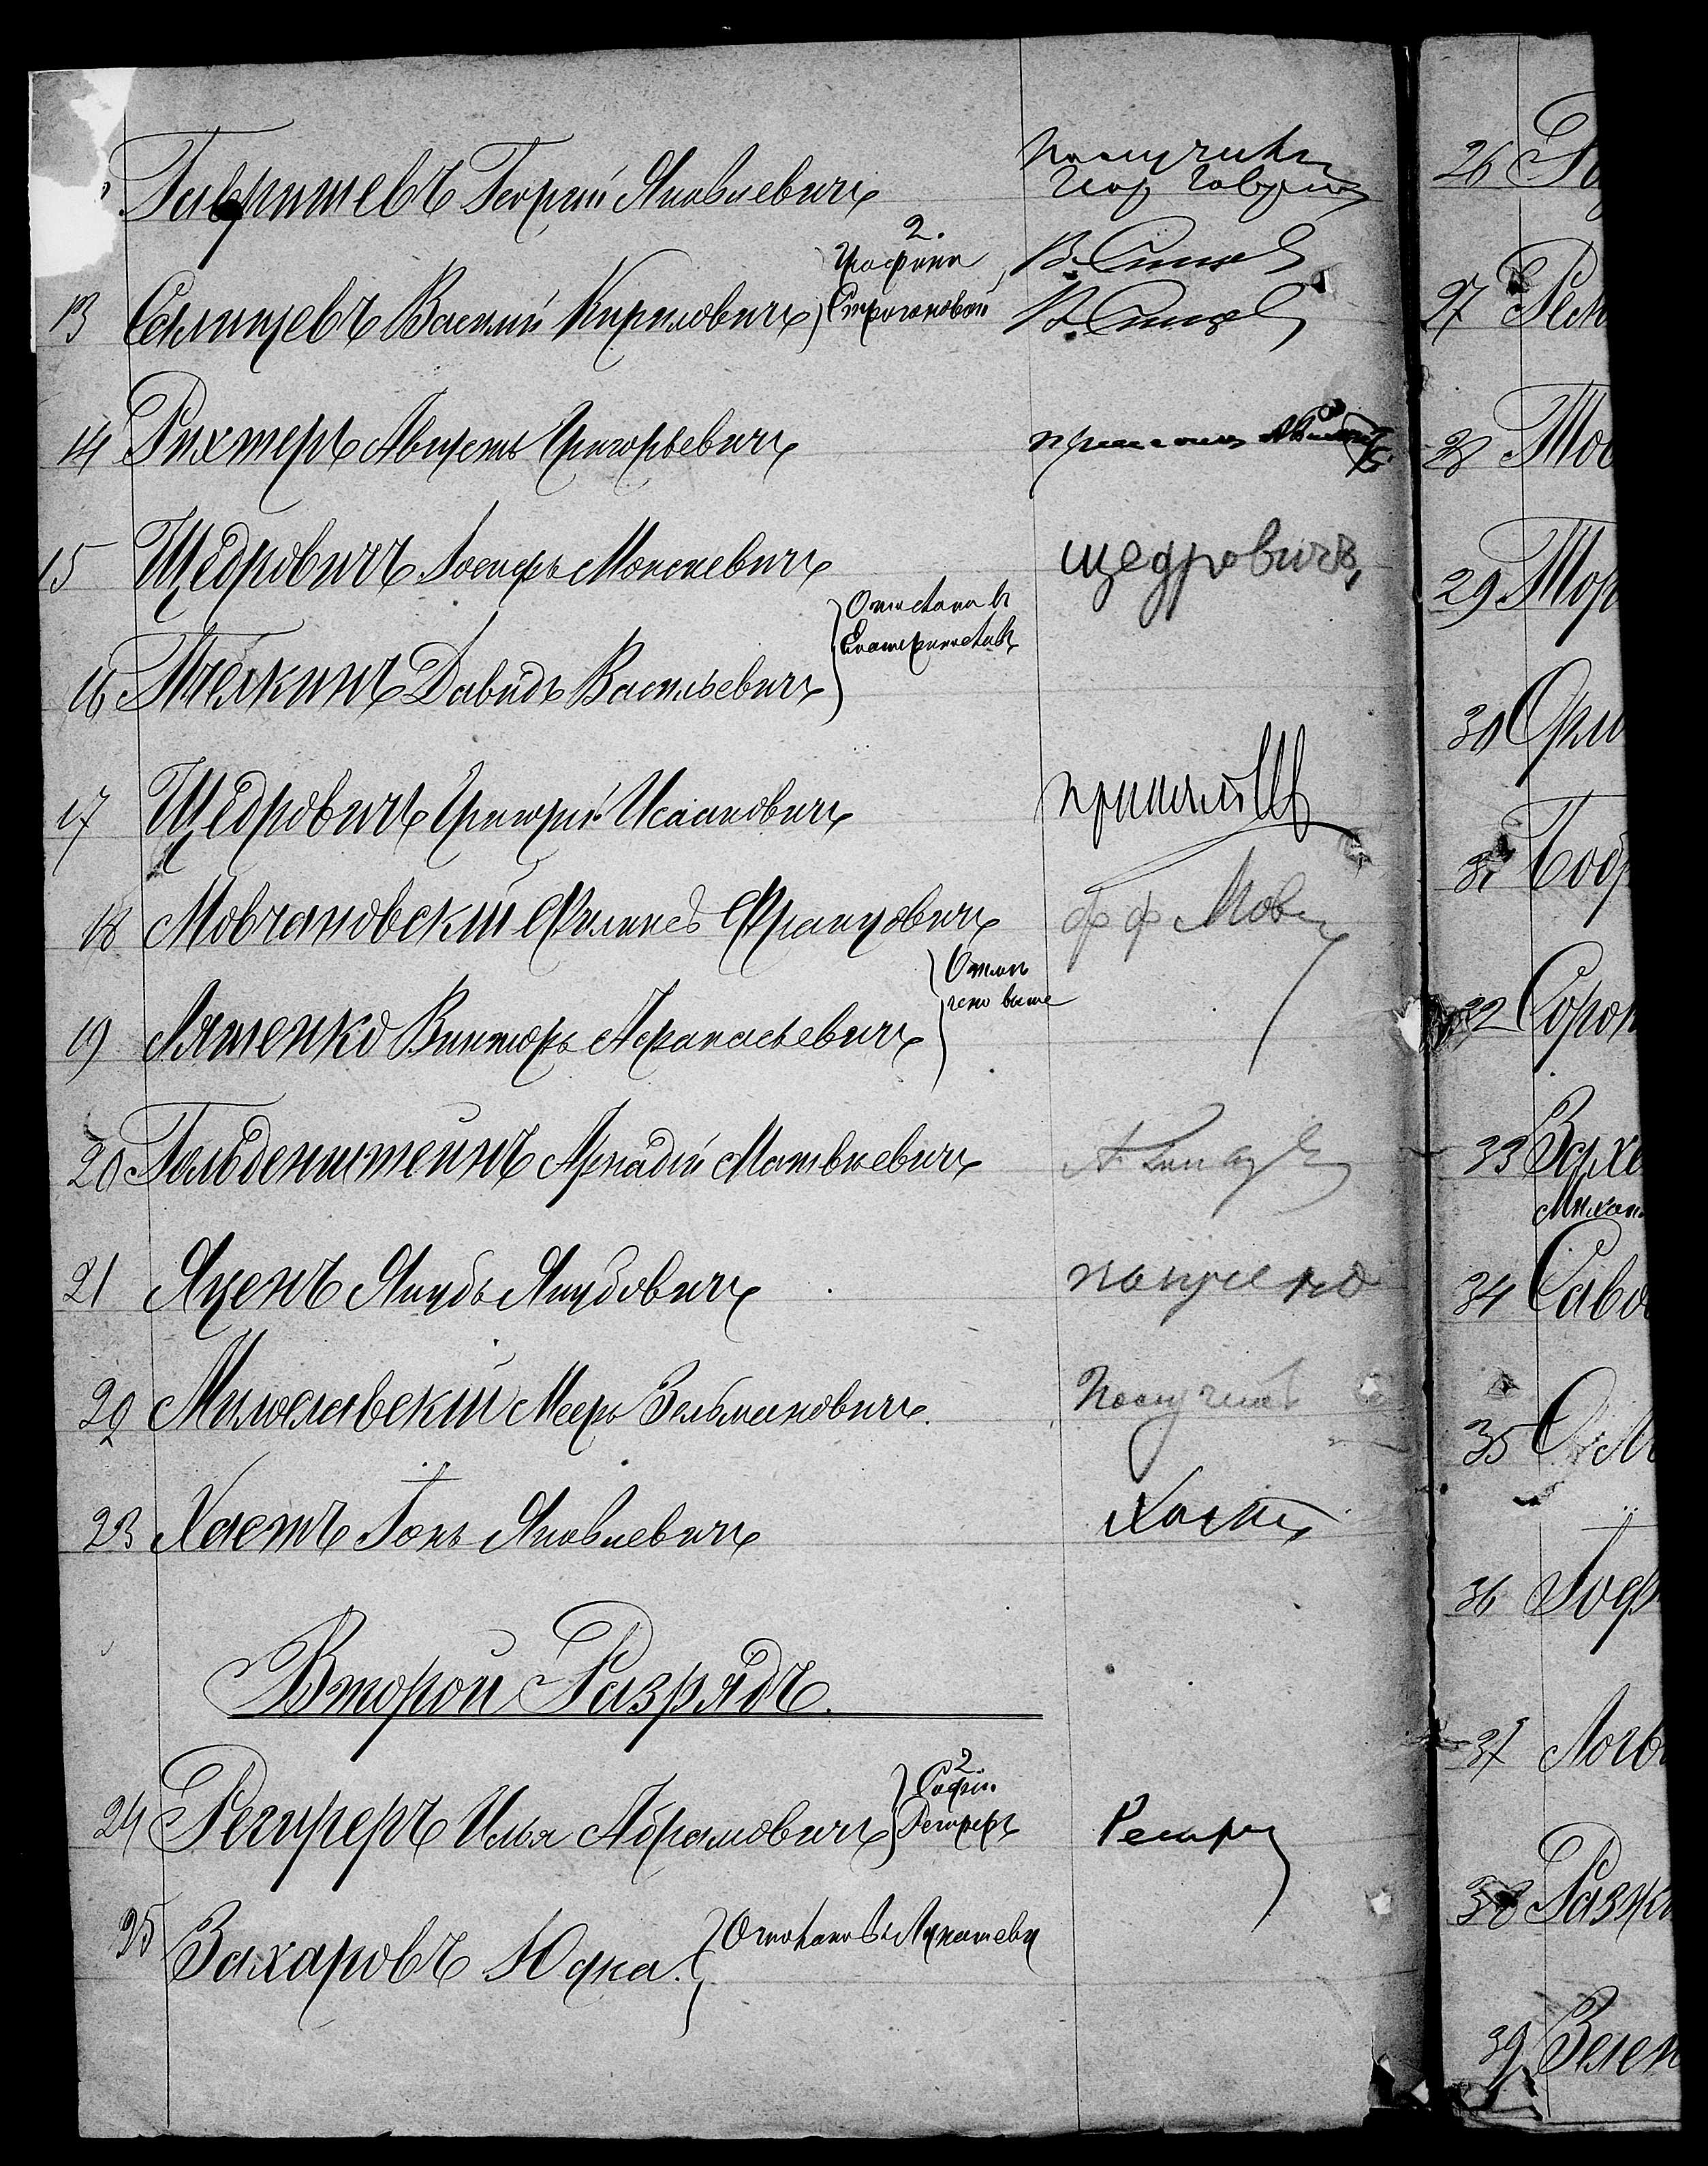 Гавришевъ Георгій Яковлевичъ
Получилъ
Геор Гаври
13 Селищевъ Василій Кириловичъ
2.
Графини
Строгоновой
14 Рихтеръ Августъ Григорьевичъ
15 Щедровичъ Іосифъ Моисеевичъ
щедровичъ
16 Тёскинъ Давидъ Васильевичъ
Отослана въ
Екатеринославъ
17 Щедровичъ Григорій Исааковичъ
принялъ Щ
18 Мовчановскій Филиксъ Францовичъ
Ф Ф Мов
19 Ляшенко Викторъ Афанасьевичъ
Отмѣ
чено выше
20 Гольденштейнъ Аркадій Матвѣевичъ
21 Яценъ Якубъ Якубовичъ
получено
22 Милославскій Мееръ Зельмановичъ.
Получилъ
23 Хаетъ Іонъ Яковлевичъ
Хаетъ
Второй Разрядъ.
24 Региреръ Илья Абрамовичъ
2.
Софіи
Региреръ
Регир
25 Захаровъ Юдка.
Отослано въ Лукашевку
26
27 Рем
28 Мос
29 Мор
30 Орл
31 Бобр
32 Сорок
33 Захе
Михаи
34 Саво
35
36 Іоф
37 Логв
38 Разу
39 Зелен